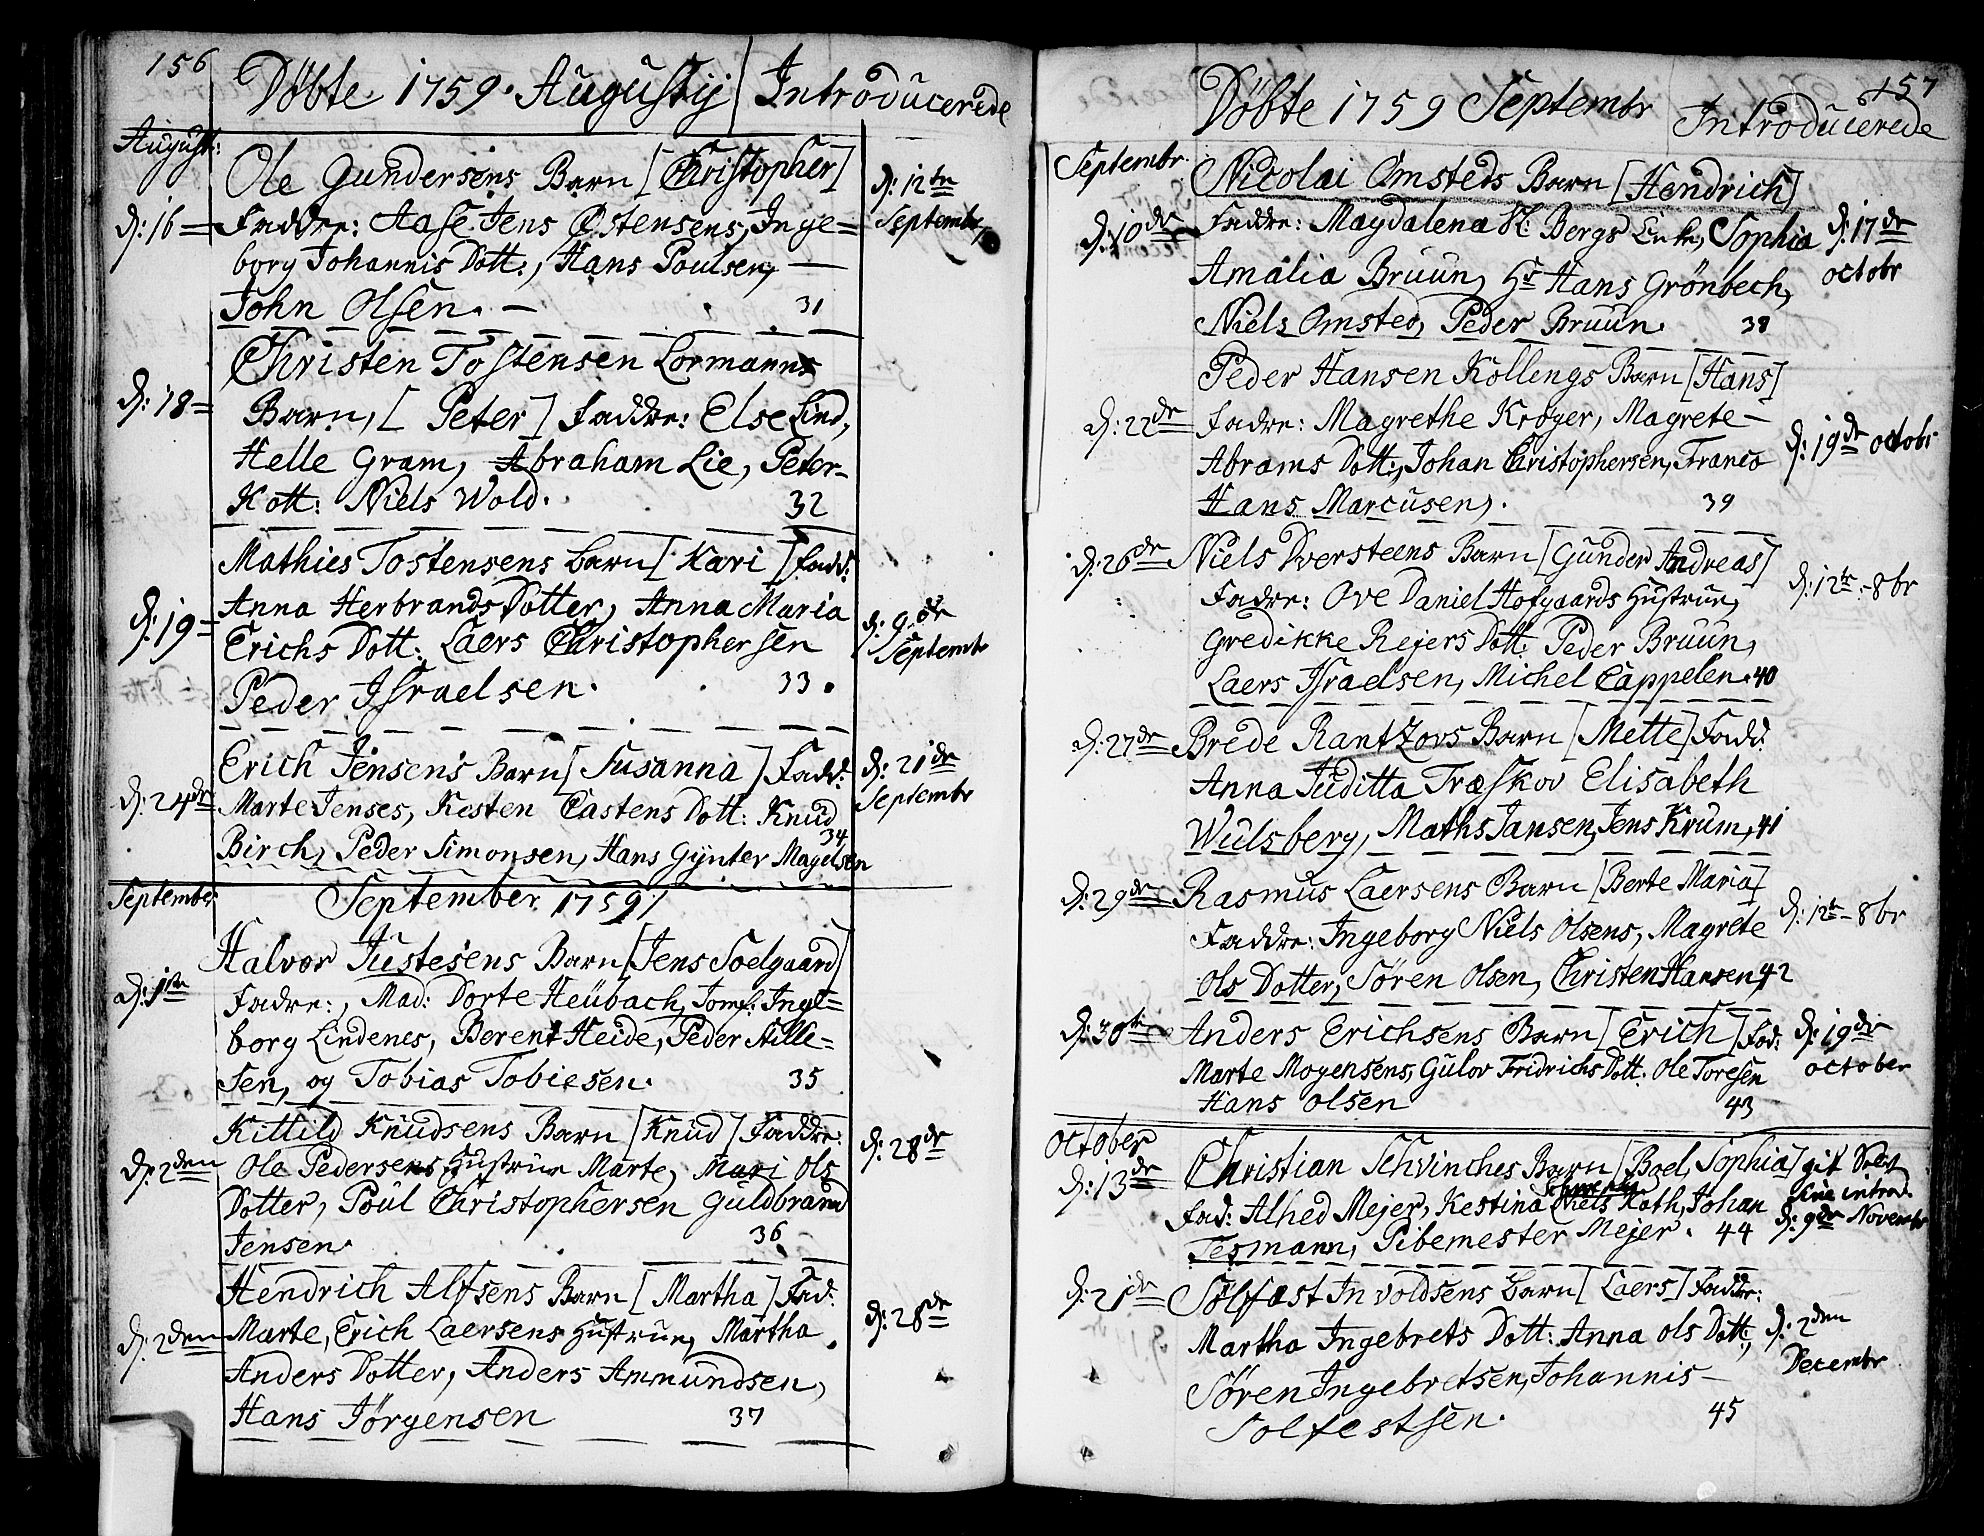 156
Döbte 1759. Augustij | Introducerede
August:
Ole Gundersens Barn [Christopher]
d: 16 = Faddre: Aase Jens Östensens, Inge=
borg Johannis Dott:, Hans Poulsen,
John Olssen. — 31
d: 12te Septembr
Christen Tostensen Lormanns
d: 18 = Barn, [Peter] Faddre: Else Lind,
Helle Gram, Abraham Lie, Peter
Kott: Niels Wold. 32
Mathies Tostensens barn [Kari] Fadd:
d: 19 = Anna Herbrands Dotter, Anna Maria
Erichs Dott: Laers Christophersen
Peder Israelsen. 33.
d: 9de Septembr
Erich Jensens Barn [Susanna] Fadd:
d: 24de Marte Jenses, Kesten Castens Dott: Knud
Birch, Peder Simonsen, Hans Gÿnter Magelsen 34
d: 21de Septembr
September
September 1759
Halvor Justesens Barn [Jens Soelgaard]
d: 1ste Fadre:, Mad: Dorte Heübach, Jomf: Inge=
borg Lindenes, Berent Heide, Peder Nille=
sen, og Tobias Tobiesen. 35
Kittild Knudsens Barn [Knud] Faddre:
d: 2den Ole Pedersens Hustrue Marte, Mari Ols
Dotter, Poul Christophersen Guldbrand
Jensen. 36
d: 28de
Hendrich Alfsens Barn [Martha] Fad:
d: 2den Marte, Erich Laersens Hustrue, Martha
Anders Dotter, Anders Ammundsen,
Hans Jörgensen 37
d: 28de
157
Döbte 1759 Septembr Introducerede
Septembr.
Nicolai Omsteds Barn [Hendrich]
d: 10de Faddre: Magdalena Sl: Bergs Enke, Sophia
Amalia Bruun, Hr Hans Grönbech,
Niels Omsted, Peder Bruun. 38
d: 17de octobr
Peder Hansen Kollengs Barn [Hans]
d: 22de Fadre: Magrethe Kröger, Magrete
Abrams Dott:, Johan Christophersen, Franco
Hans Marcusen. 39
d: 19de octobr
d: 26de Niels Dversteens Barn [Gunder Andreas]
Fadre: Ove Daniel Hofgaards Hustrue,
Gredikke Rejers Dott: Peder Bruun,
Laers Israelsen, Michel Cappelen. 40
d: 12te - 8br
d: 27de Brede Rantzovs Barn [Mette] Fadd:
Anna Juditta Træskov Elisabeth
Wulsberg, Maths Jansen, Jens Krum, 41
d: 29de Rasmus Laersens Barn [Berte Maria]
Faddre: Ingeborg Niels Olsens, Magrete
Ols Dotter, Sören Olsen, Christen Hansen, 42
d: 12te - 8br
d: 30te Anders Erichsens Barn [Erich] Fad:
Marte Mogensens, Gulov Fridrichs Dott: Ole Toresen
Hans Olsen 43
d: 19de october
October
d: 13de Christian Schvinches Barn [Boel Sophia]
Fad: Alhed Mejer, Kestina Niels Koth, Johan
Tesmann, Pibemester Mejer. 44
sine introd.
d: 9de Novembr
d: 21de Solfæst Involdsens barn [Laers] Faddre:
Martha Ingebrets Dott: Anna Ols Dott:,
Sören Ingebretsen, Johannis
Solfestsen. 45
d: 2den Decembr